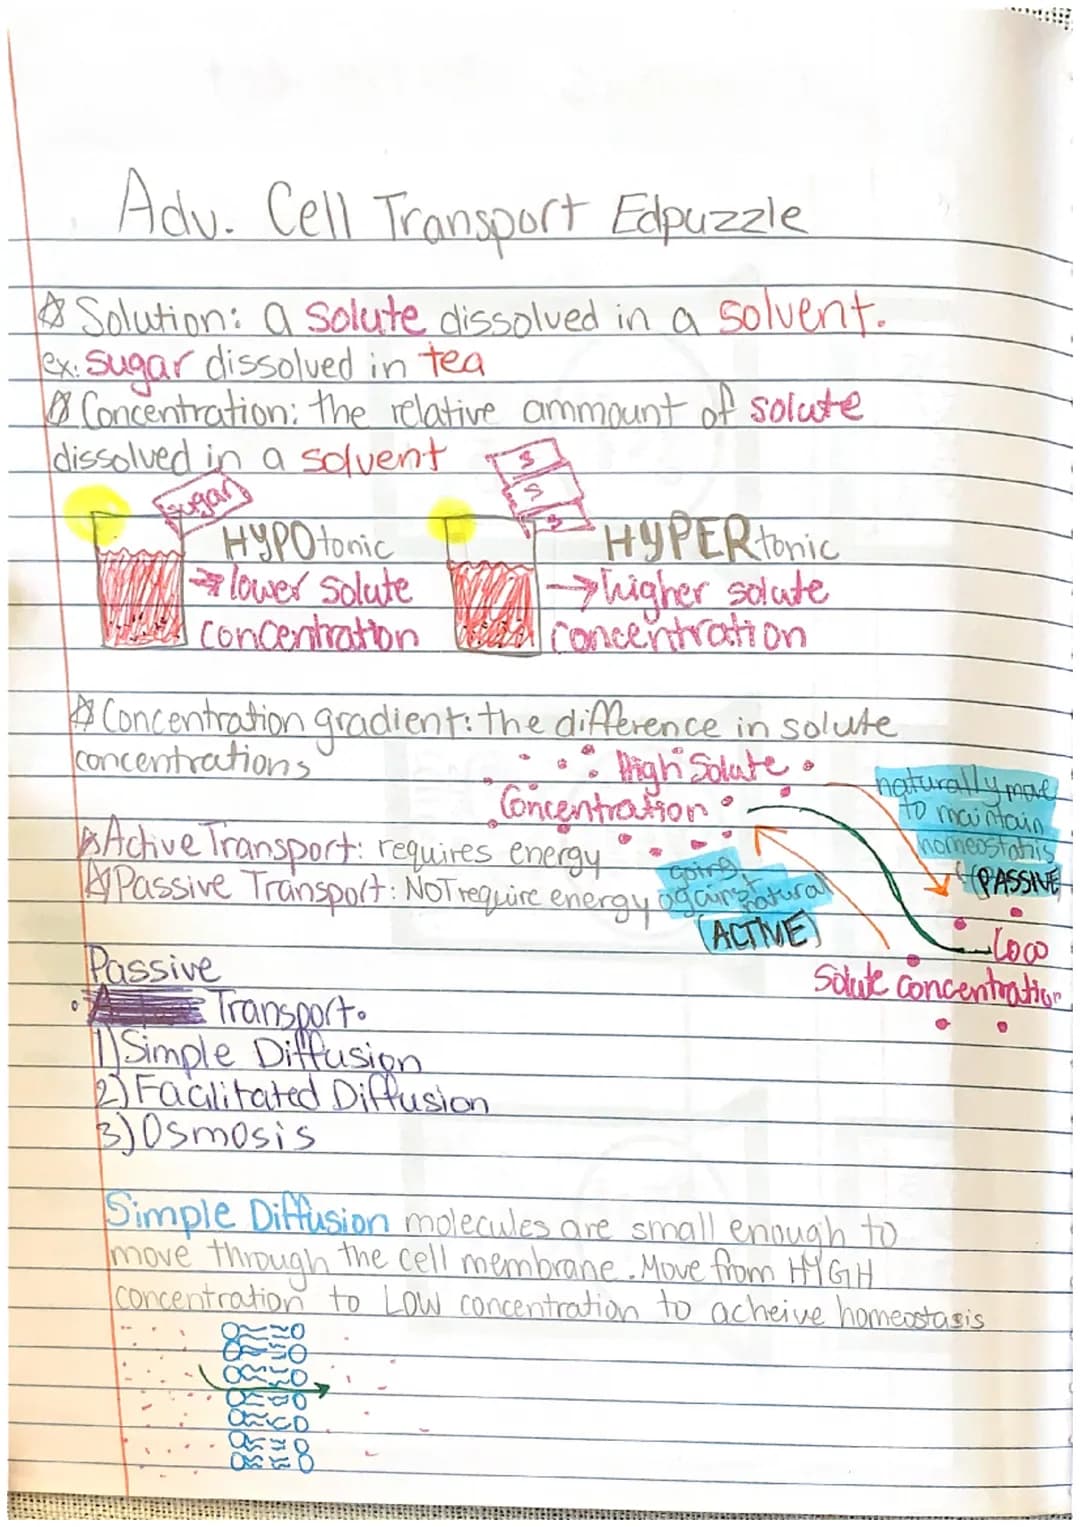 Adv. Cell Transport Edpuzzle
☆ Solution: a solute dissolved in a solvent.
ex. sugar dissolved in tea
☆ Concentration: the relative ammount of solute
dissolved in a solvent
sugar
S
S
S
HYPOtonic
→ lower solute
concentration
HYPERtonic
→ higher solute
concentration
☆ Concentration gradient: the difference in solute
concentrations
High Solute
Concentration
naturally move
to maintain
homeostatis
(PASSIVE
☆ Active Transport: requires energy
☆ Passive Transport: NOT require energy
going
against natural
(ACTIVE)
Low
Solute concentration
Passive
• Transport.
1) Simple Diffusion
2) Facilitated Diffusion
3) Osmosis
Simple Diffusion molecules are small enough to
move through the cell membrane. Move from HIGH
concentration to LOW concentration to acheive homeostasis